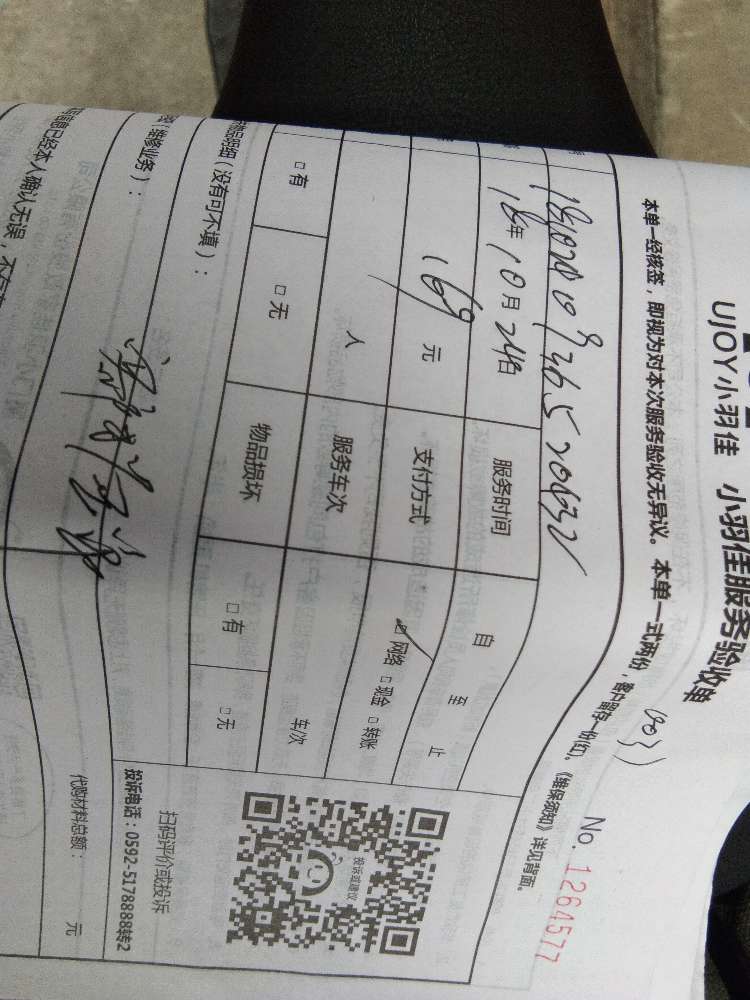 UJOY小羽佳 小羽佳服务验收单
No. 1264577
本单一经核签，即视为对本次服务验收无异议。本单一式两份，客户留存一份(红)，《维保须知》详见背面。
18年10月24日 服务时间 自 至 止
169元 支付方式 ☑网络 □现金 □转账
人 服务车次 车/次
□有 □无 物品损坏 □有 □无
明细（没有可不填）：
扫码评价或投诉
投诉或建议
投诉电话：0592-5178888转2
维修业务）：
代购材料总额： 元
信息已经本人确认无误，不